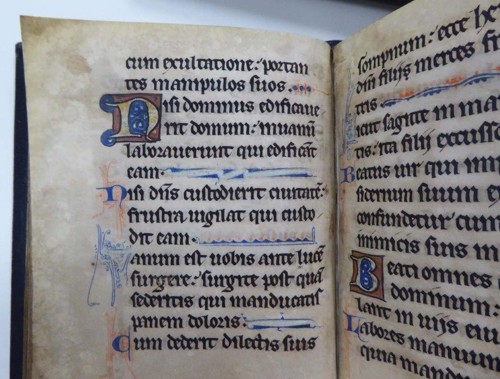 cum exultatione: portan
tes manipulos suos.
Nisi dominus edificaue
rit domum: inuanū
laborauerunt qui edificāt
eam.
Nisi dn̄s custodierit ciuitatē:
frustra uigilat qui custo
dit eam.
Vanum est uobis ante lucē
surgere: surgite post quā
sederitis qui manducatis
panem doloris.
Cum dederit dilectis suis
sompnum: ecce here
dn̄i filij merces fru
tris
icut sagitte in ma
tis: ita filij excussi
Beatus uir qui im
siderium suum e
confundetur cum
inimicis suis in
Beati omnes
dominum:
lant in uijs eiu
Labores manuum
quia mandu